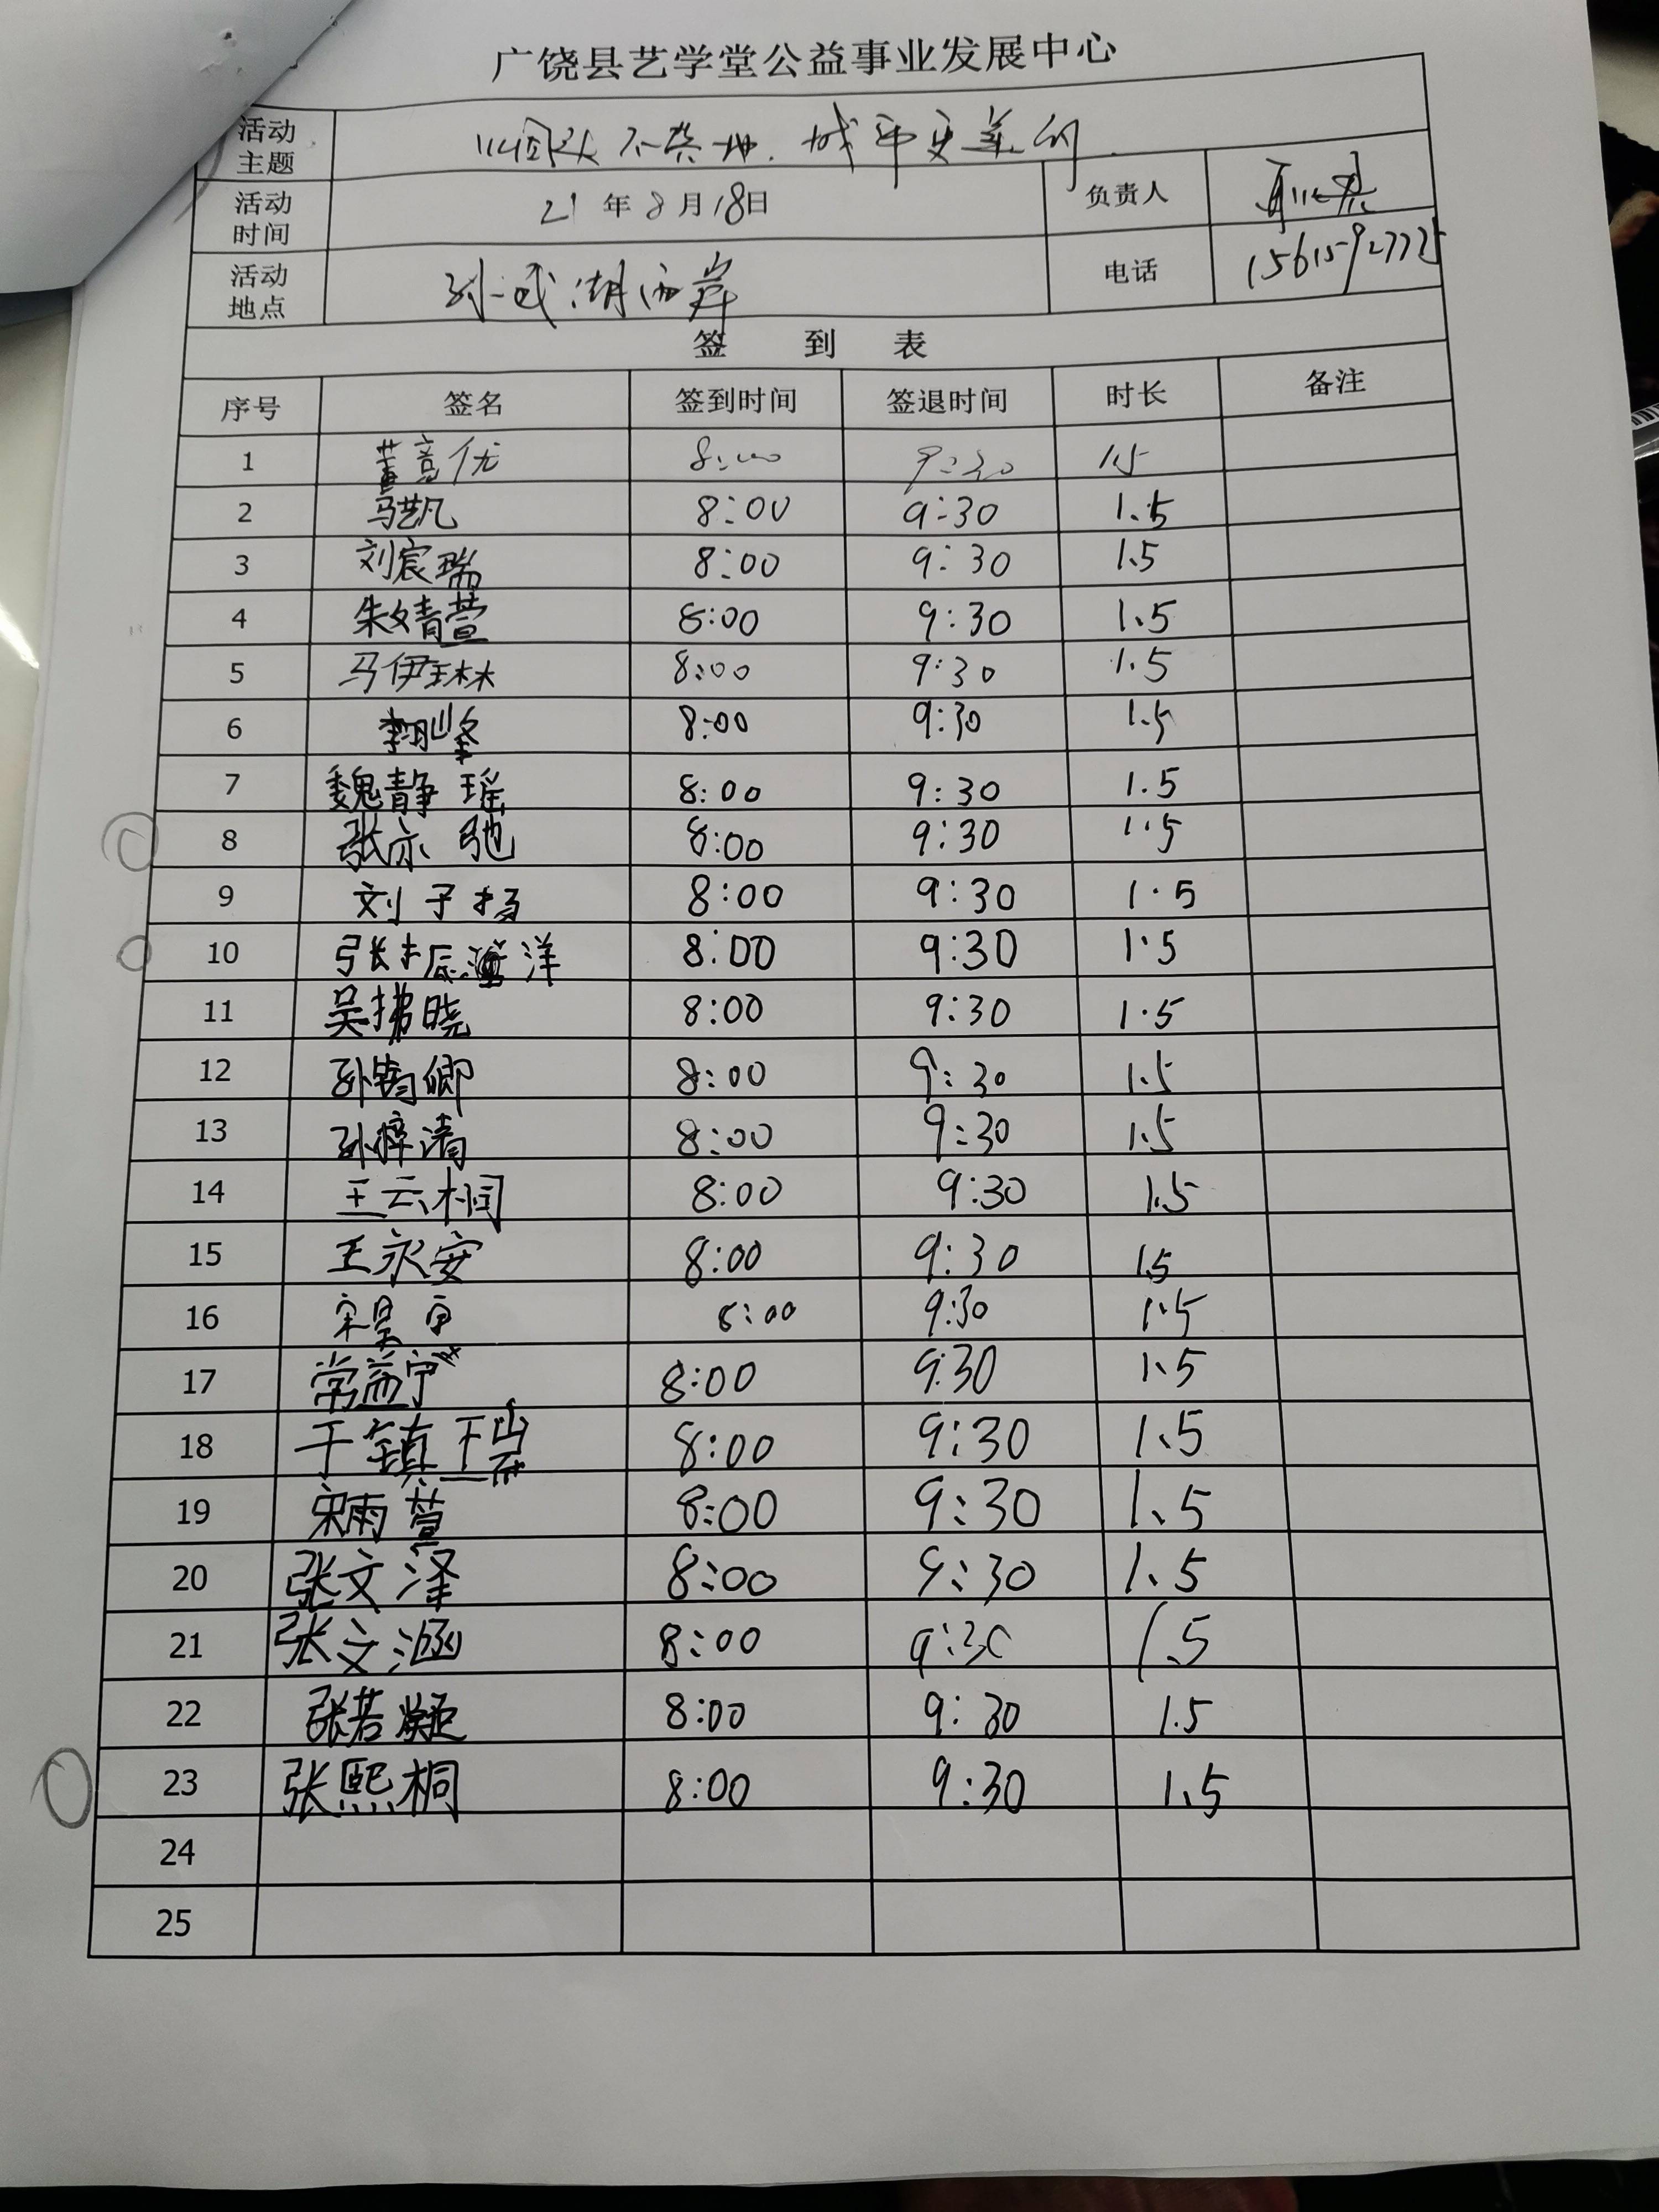 广饶县艺学堂公益事业发展中心
活动主题 烟头不落地.城市更美的
活动时间 21年8月18日 负责人
活动地点 孙武湖西岸 电话
签到表
序号 签名 签到时间 签退时间 时长 备注
1 董高优 8:00 9:30 1.5
2 马艺凡 8:00 9:30 1.5
3 刘宸瑞 8:00 9:30 1.5
4 朱婧萱 8:00 9:30 1.5
5 马伊琳 8:00 9:30 1.5
6 8:00 9:30 1.5
7 魏静瑶 8:00 9:30 1.5
8 张亦弛 8:00 9:30 1.5
9 刘子扬 8:00 9:30 1.5
10 张振洋 8:00 9:30 1.5
11 吴拂晓 8:00 9:30 1.5
12 孙钧卿 8:00 9:30 1.5
13 孙梓清 8:00 9:30 1.5
14 王云桐 8:00 9:30 1.5
15 王永安 8:00 9:30 1.5
16 8:00 9:30 1.5
17 常益宁 8:00 9:30 1.5
18 于镇瑞 8:00 9:30 1.5
19 宋雨萱 8:00 9:30 1.5
20 张文泽 8:00 9:30 1.5
21 张文涵 8:00 9:30 1.5
22 张若凝 8:00 9:30 1.5
23 张熙桐 8:00 9:30 1.5
24
25